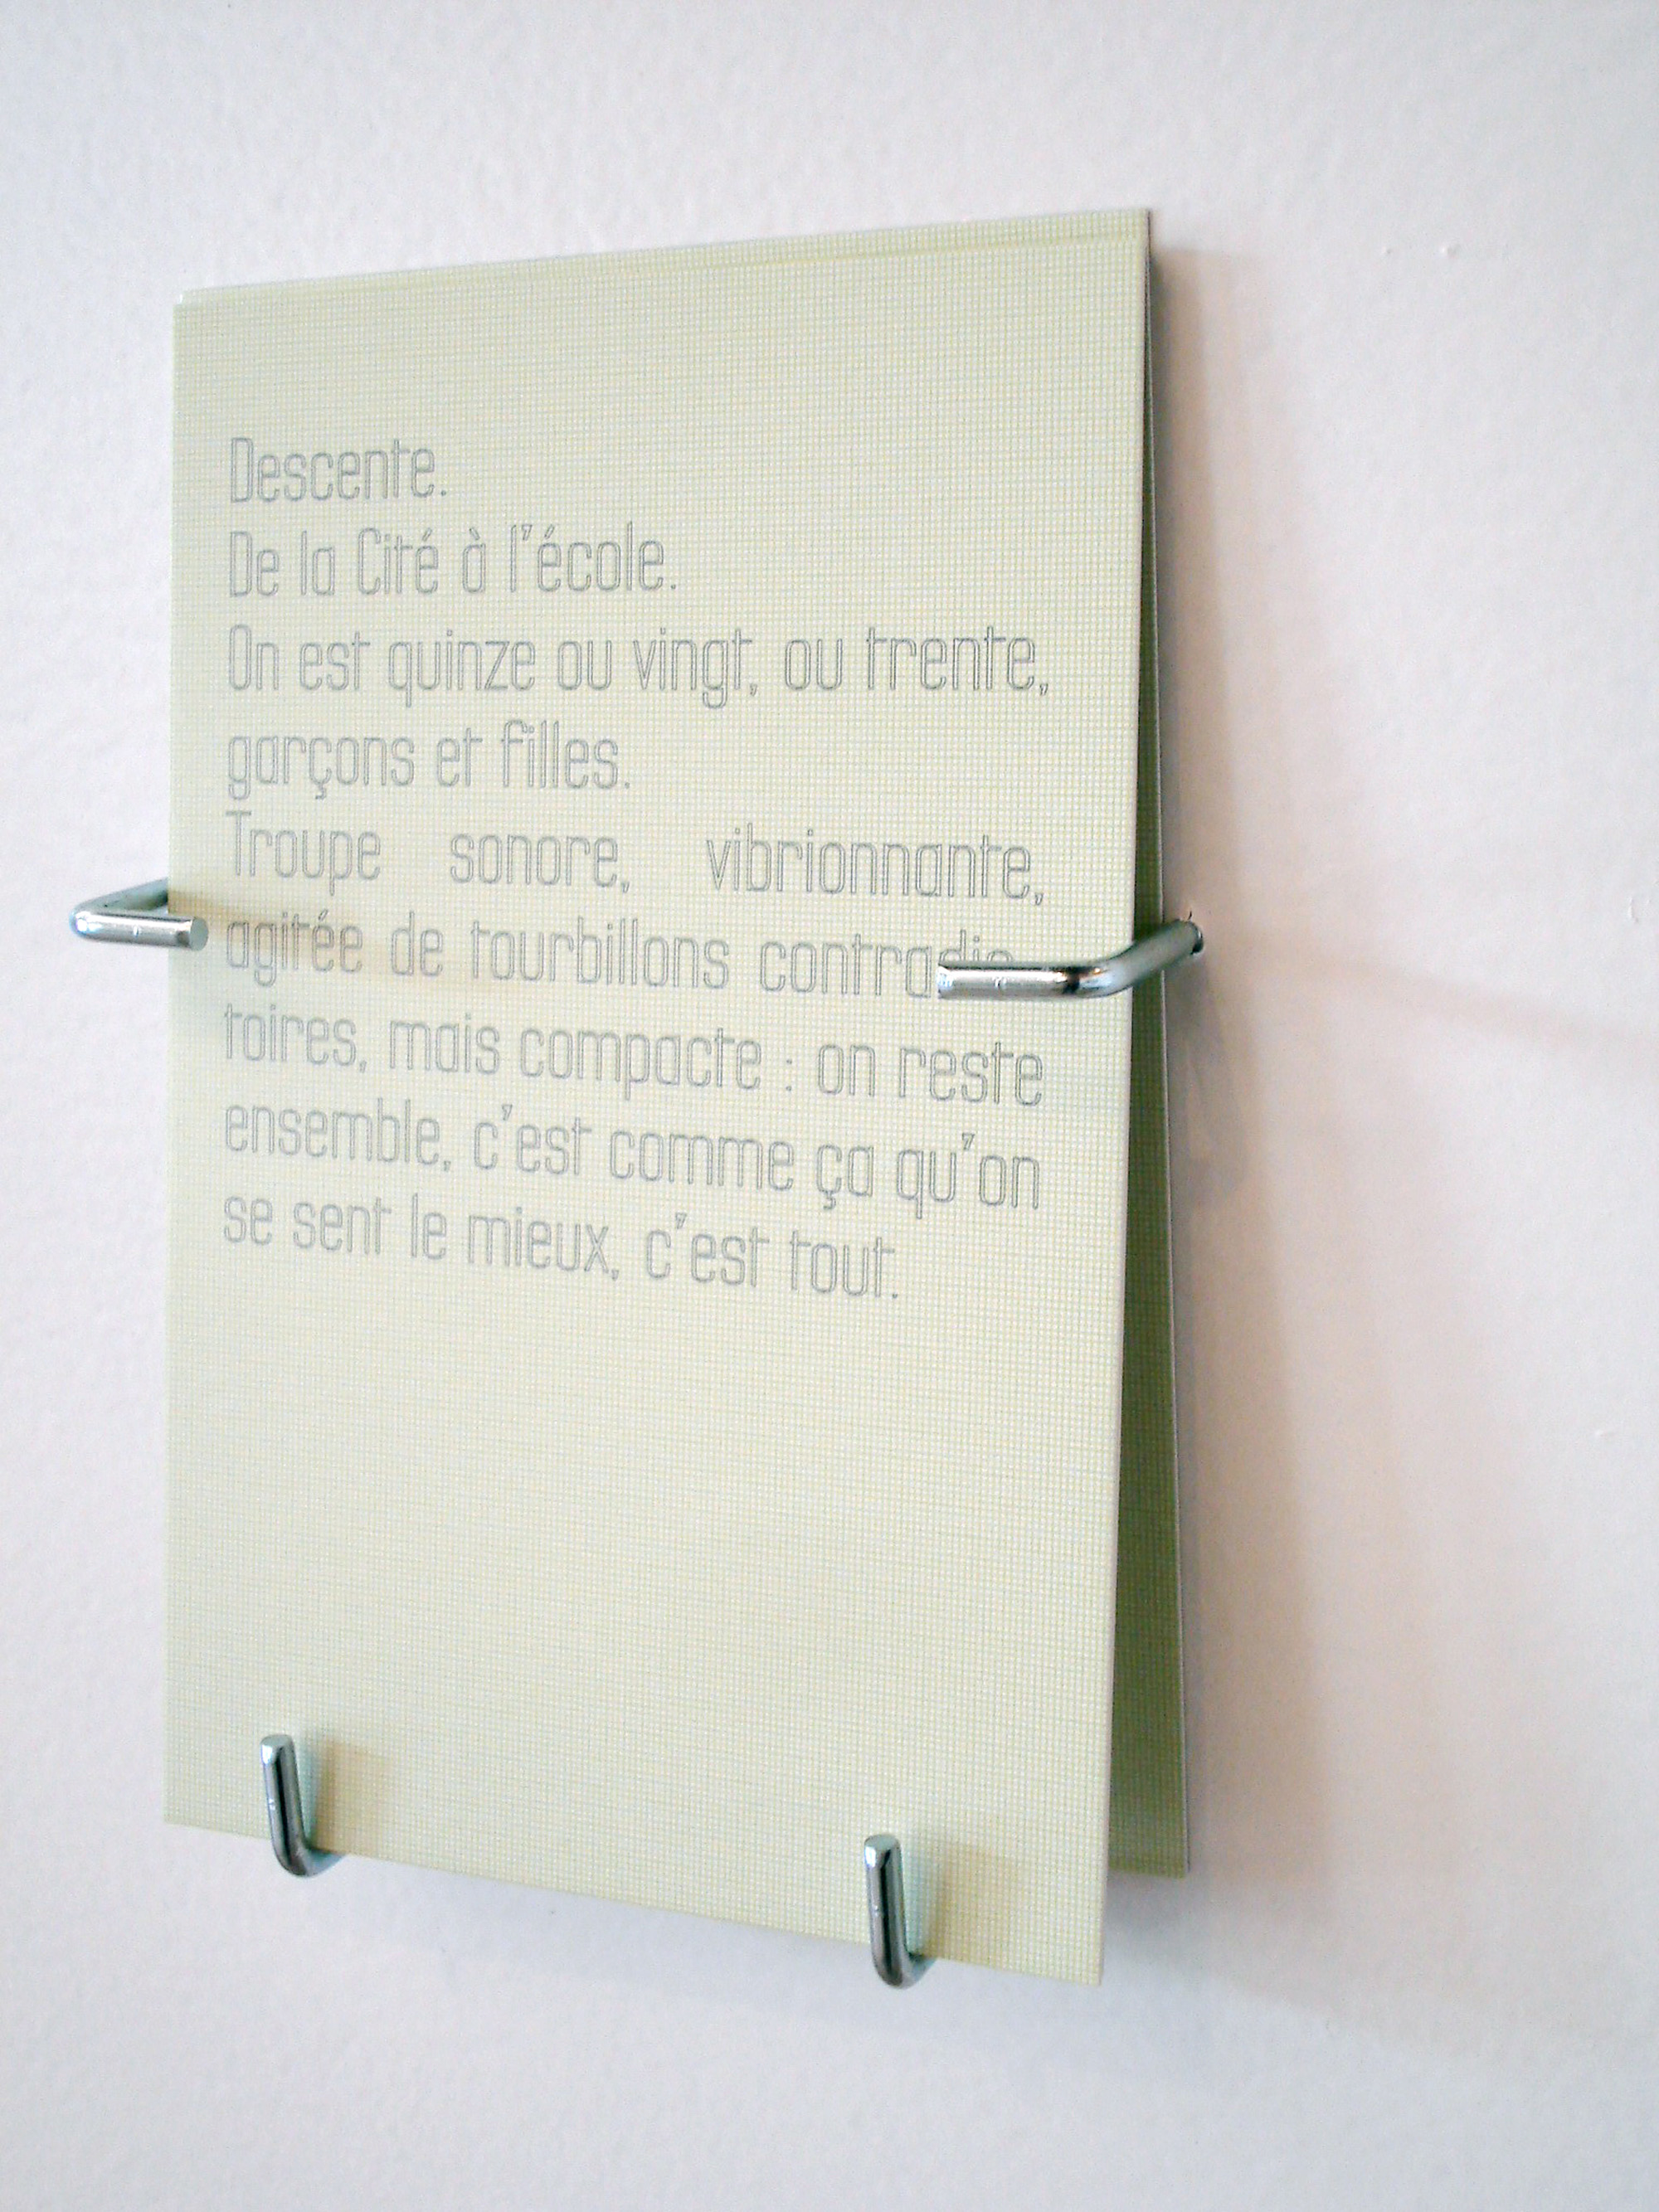 Descente.
De la Cité à l'école.
On est quinze ou vingt, ou trente,
garçons et filles.
Troupe sonore, vibrionnante,
agitée de tourbillons contradic-
toires, mais compacte : on reste
ensemble, c'est comme ça qu'on
se sent le mieux, c'est tout.